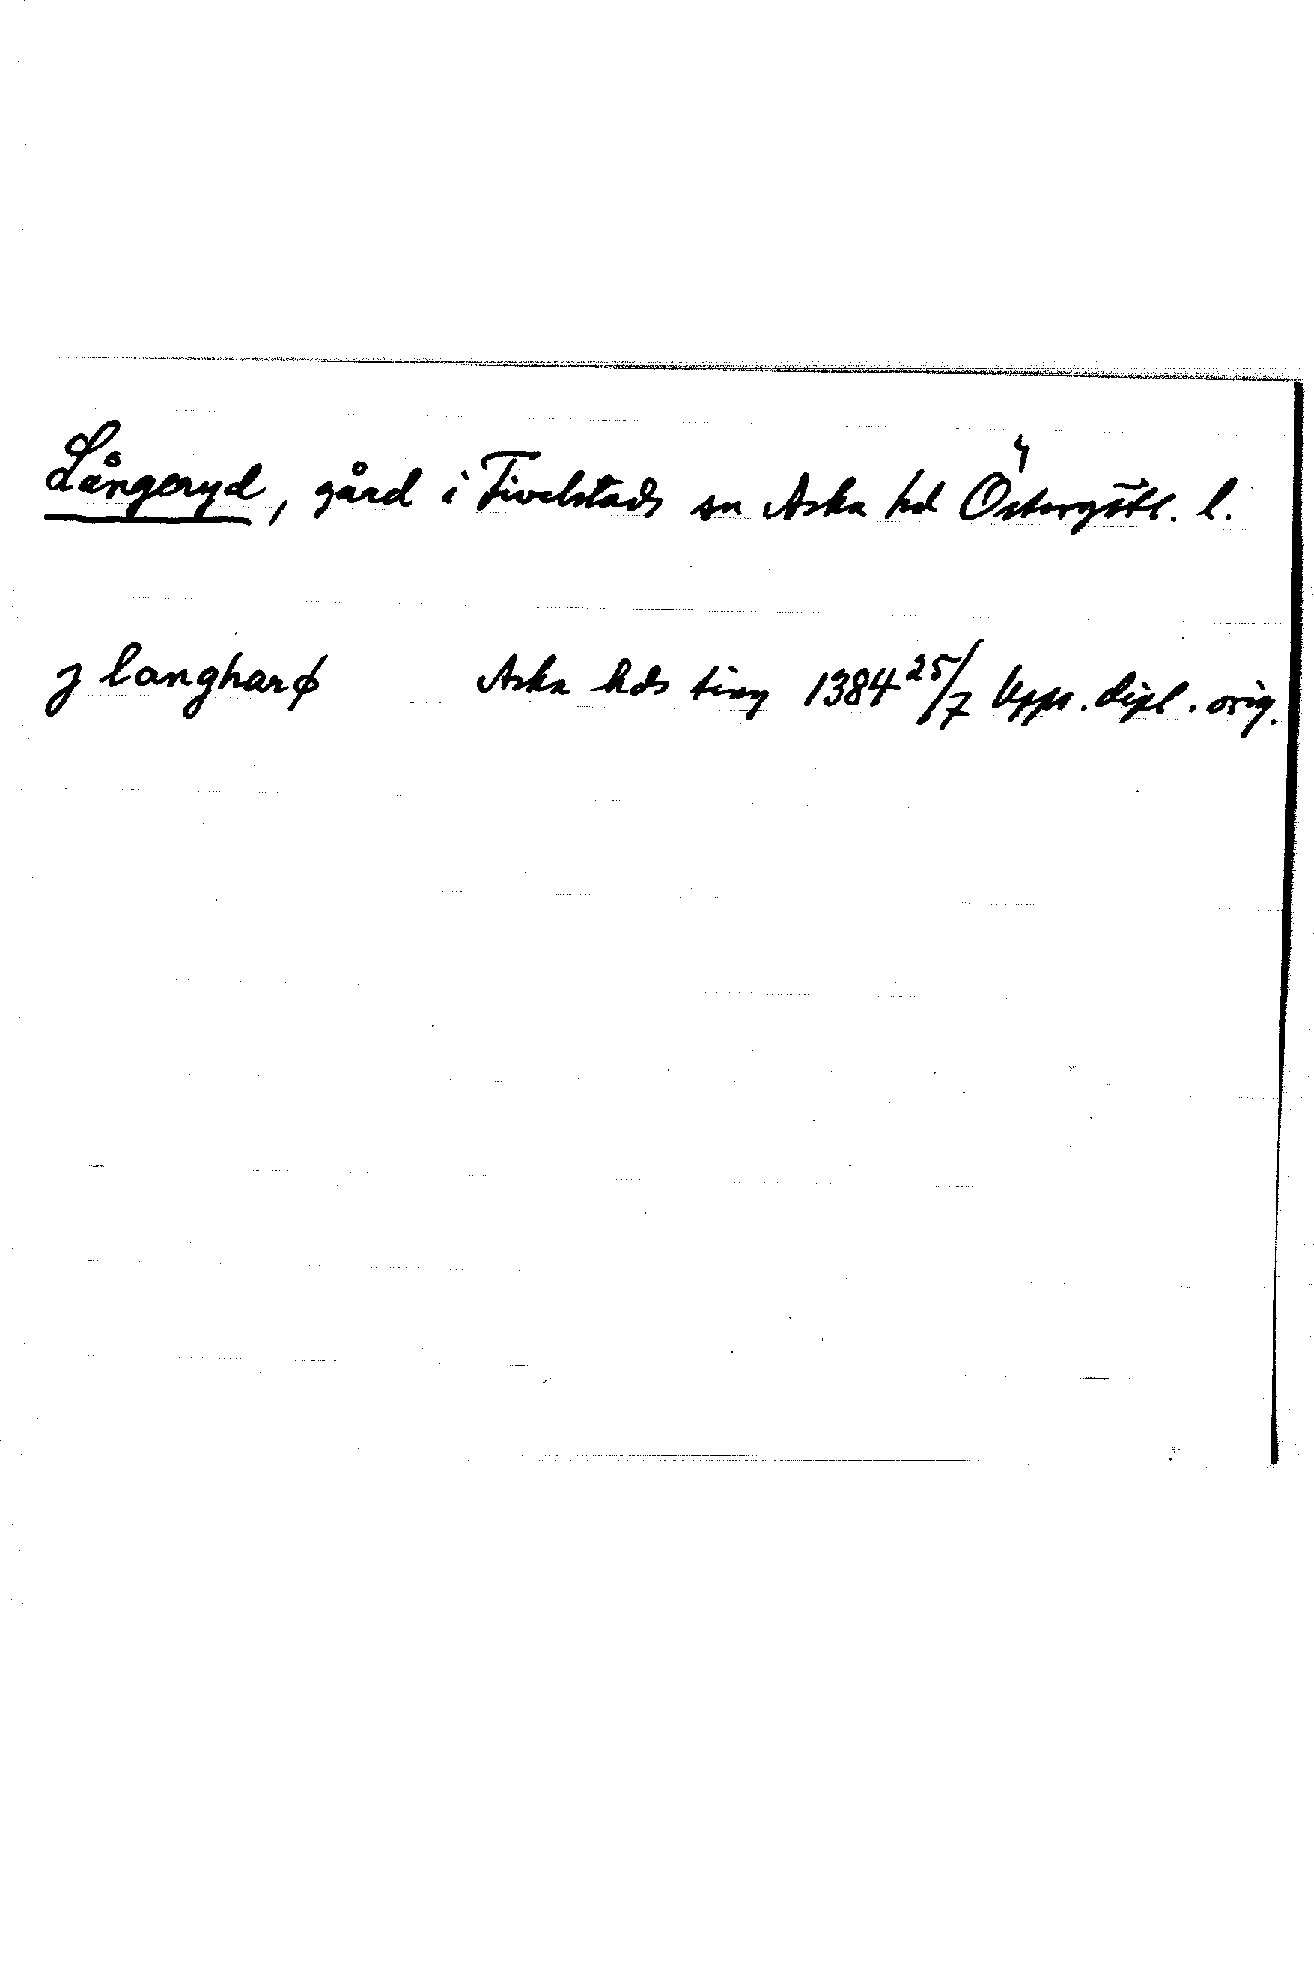 Långeryd, gård i Fivelstads sn Aska hd Östergötl. l.
j langharø Aska hds ting 1384 25/7 Upps. dipl. orig.